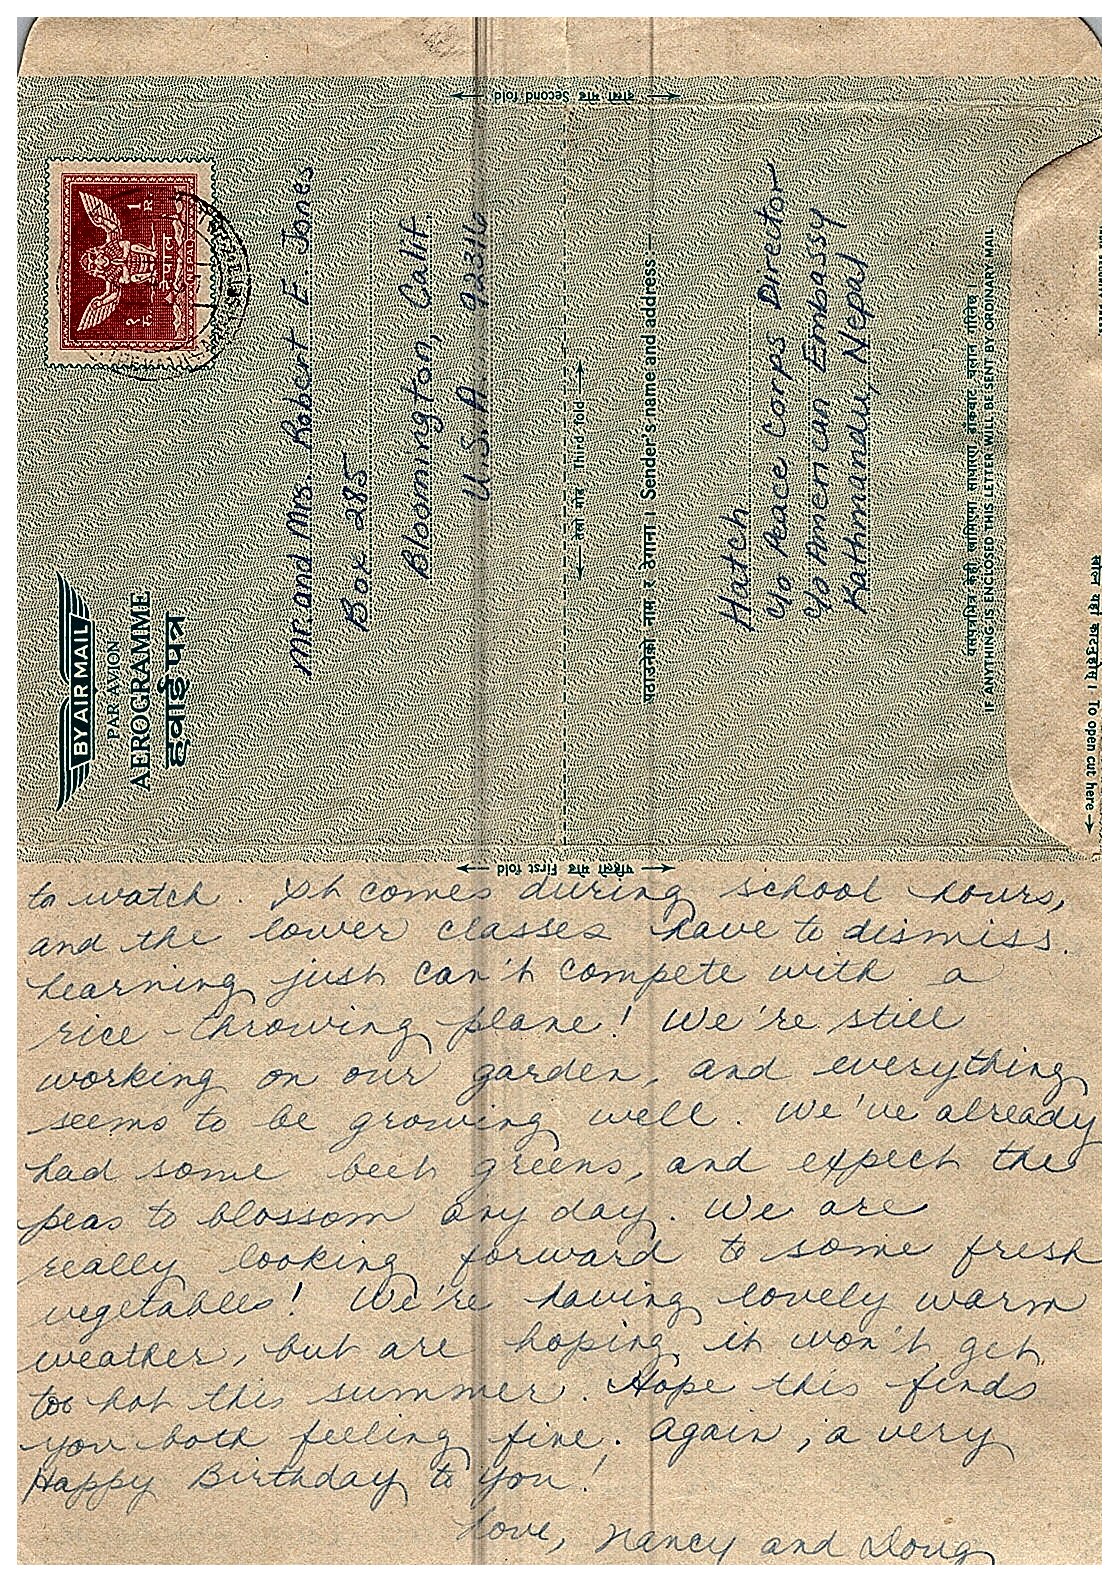 दोस्रो मोड Second fold
१ रु.
1 R.
नेपाल
NEPAL
BY AIR MAIL
PAR AVION
AEROGRAMME
हवाई पत्र
Mr. and Mrs. Robert E. Jones
Box 285
Bloomington, Calif.
U. S. A. 92316
तेस्रो मोड Third fold
पठाउनेको नाम र ठेगाना । Sender's name and address
Hatch
c/o Peace Corps Director
c/o American Embassy
Kathmandu, Nepal
यसपत्रभित्र केही खामिएमा साधारण डाँकबाट चलान गरिनेछ ।
IF ANYTHING IS ENCLOSED THIS LETTER WILL BE SENT BY ORDINARY MAIL
खोल्न यहाँ काट्नुहोस् । To open cut here
पहिलो मोड First fold
to watch. It comes during school hours,
and the lower classes have to dismiss.
Learning just can't compete with a
rice-throwing plane! We're still
working on our garden, and everything
seems to be growing well. We've already
had some beet greens, and expect the
peas to blossom any day. We are
really looking forward to some fresh
vegetables! We're having lovely warm
weather, but are hoping it won't get
too hot this summer. Hope this finds
you both feeling fine. Again, a very
Happy Birthday to you!
Love, Nancy and Doug